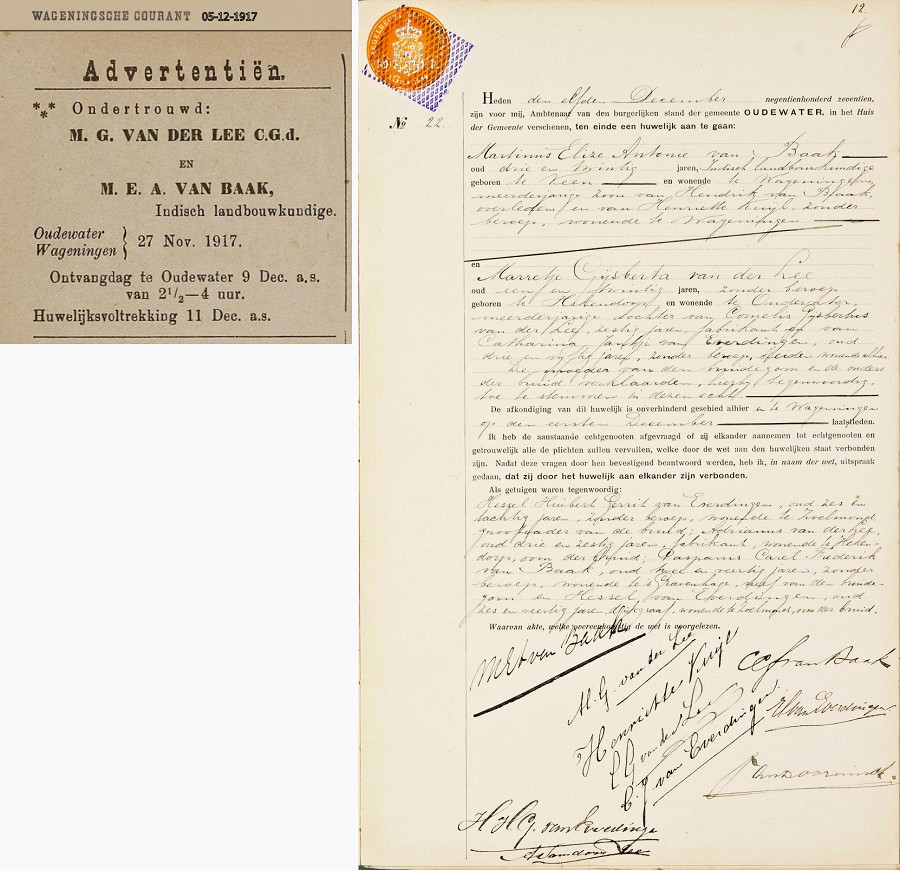 WAGENINGSCHE COURANT 05-12-1917
Advertentiën.
⁂ Ondertrouwd:
M. G. VAN DER LEE C.G.d.
EN
M. E. A. VAN BAAK,
Indisch landbouwkundige.
Oudewater
Wageningen } 27 Nov. 1917.
Ontvangdag te Oudewater 9 Dec. a.s.
van 2½—4 uur.
Huwelijksvoltrekking 11 Dec. a.s.
12.
№ 22.
Heden den elfden December negentienhonderd zeventien,
zijn voor mij, Ambtenaar van den burgerlijken stand der gemeente OUDEWATER, in het Huis
der Gemeente verschenen, ten einde een huwelijk aan te gaan:
Martinus Elize Antonie van Baak
oud drie en twintig jaren, Indisch landbouwkundige
geboren te en wonende te Wageningen,
meerderjarige zoon van Hendrik van Baak,
overleden, en van Henriette zonder
beroep, wonende te Wageningen
en
Marretje Gijsberta van der Lee
oud een en twintig jaren, zonder beroep
geboren te Hekendorp en wonende te Oudewater,
meerderjarige dochter van Cornelis Gijsbertus
van der Lee, zestig jaren, fabrikant en van
Catharina Jantje van Everdingen, oud
drie en vijftig jaren, zonder beroep, beiden wonende alhier.
De moeder van den bruidegom en de ouders
der bruid verklaarden, hierbij tegenwoordig,
toe te stemmen in dezen echt.
De afkondiging van dit huwelijk is onverhinderd geschied alhier en te Wageningen
op den eersten December laatstleden.
Ik heb de aanstaande echtgenooten afgevraagd of zij elkander aannemen tot echtgenooten en
getrouwelijk alle de plichten zullen vervullen, welke door de wet aan den huwelijken staat verbonden
zijn. Nadat deze vragen door hen bevestigend beantwoord werden, heb ik, in naam der wet, uitspraak
gedaan, dat zij door het huwelijk aan elkander zijn verbonden.
Als getuigen waren tegenwoordig:
Hessel Huibert Gerrit van Everdingen, oud zes en
tachtig jaren, zonder beroep, wonende te Zoelmond,
grootvader van de bruid, Adrianus van der Lee,
oud drie en zestig jaren, fabrikant, wonende te Heken-
dorp, oom der bruid, Casparus Carel Frederik
van Baak, oud twee en veertig jaren, zonder
beroep, wonende te 's Gravenhage, neef van den bruide-
gom en Hessel van Everdingen, oud
zes en veertig jaren, dijkgraaf, wonende te Zoelmond, oom der bruid.
Waarvan akte, welke overeenkomstig de wet is voorgelezen.
MEA van Baak
M. G. van der Lee
Henriette
CCF van Baak
C G van der Lee
C. J. van Everdingen
H van Everdingen
H H G. van Everdingen
A van der Lee